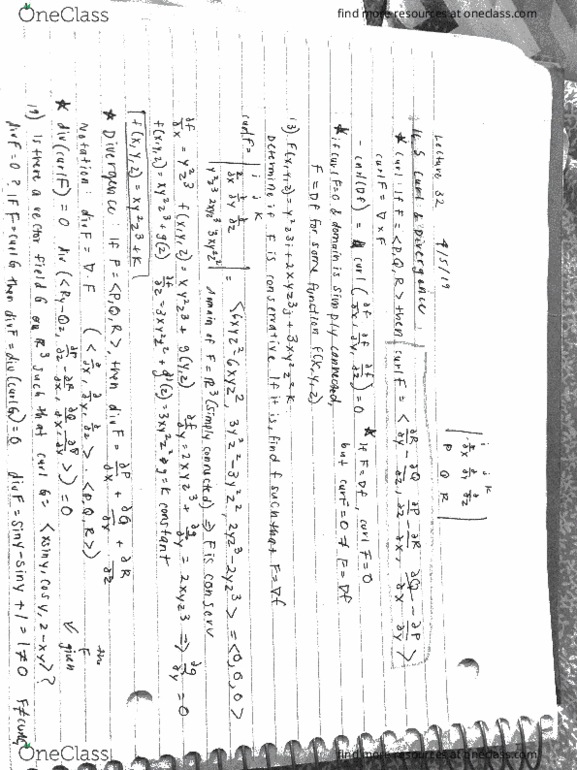 OneClass
find more resources at oneclass.com
Lecture 32 4/5/19
16.5 Curl & Divergence
i j k
∂/∂x ∂/∂y ∂/∂z
P Q R
* Curl: If F = <P,Q,R> then curl F = <∂R/∂y - ∂Q/∂z, ∂P/∂z - ∂R/∂x, ∂Q/∂x - ∂P/∂y>
curl F = ∇ x F
- curl(∇f) = curl(∂f/∂x, ∂f/∂y, ∂f/∂z) = 0 * If F = ∇f, curl F = 0
but curl = 0 ≠ F = ∇f
* if curl F = 0 & domain is simply connected,
F = ∇f for some function f(x,y,z)
13) F(x,y,z) = y²z³i + 2xyz³j + 3xy²z²k
Determine if F is conservative. If it is, find f such that F = ∇f
curl F = | i j k
∂/∂x ∂/∂y ∂/∂z
y²z³ 2xyz³ 3xy²z² | = <6xyz² - 6xyz², 3y²z² - 3y²z², 2yz³ - 2yz³> = <0,0,0>
domain of F = ℝ³ (simply connected) ⇒ F is conserv
∂f/∂x = y²z³ f(x,y,z) = xy²z³ + g(y,z) ∂f/∂y = 2xyz³ + ∂g/∂y = 2xyz³ ⇒ ∂g/∂y = 0
f(x,y,z) = xy²z³ + g(z) ∂f/∂z = 3xy²z² + g'(z) = 3xy²z² g = k constant
f(x,y,z) = xy²z³ + k
* Divergence: If F = <P,Q,R>, then div F = ∂P/∂x + ∂Q/∂y + ∂R/∂z
Notation: div F = ∇ · F (<∂/∂x, ∂/∂y, ∂/∂z> · <P,Q,R>)
* div(curl F) = 0 div(<Ry - Qz, ∂P/∂z - ∂R/∂x, ∂Q/∂x - ∂P/∂y>) = 0
the F given
19) Is there a vector field G on ℝ³ such that curl G = <xsiny, cosy, z-xy>?
div F = 0? If F = curl G then div F = div(curl G) = 0 div F = siny - siny + 1 = 1 ≠ 0 F ≠ curl G
OneClass
find more resources at oneclass.com